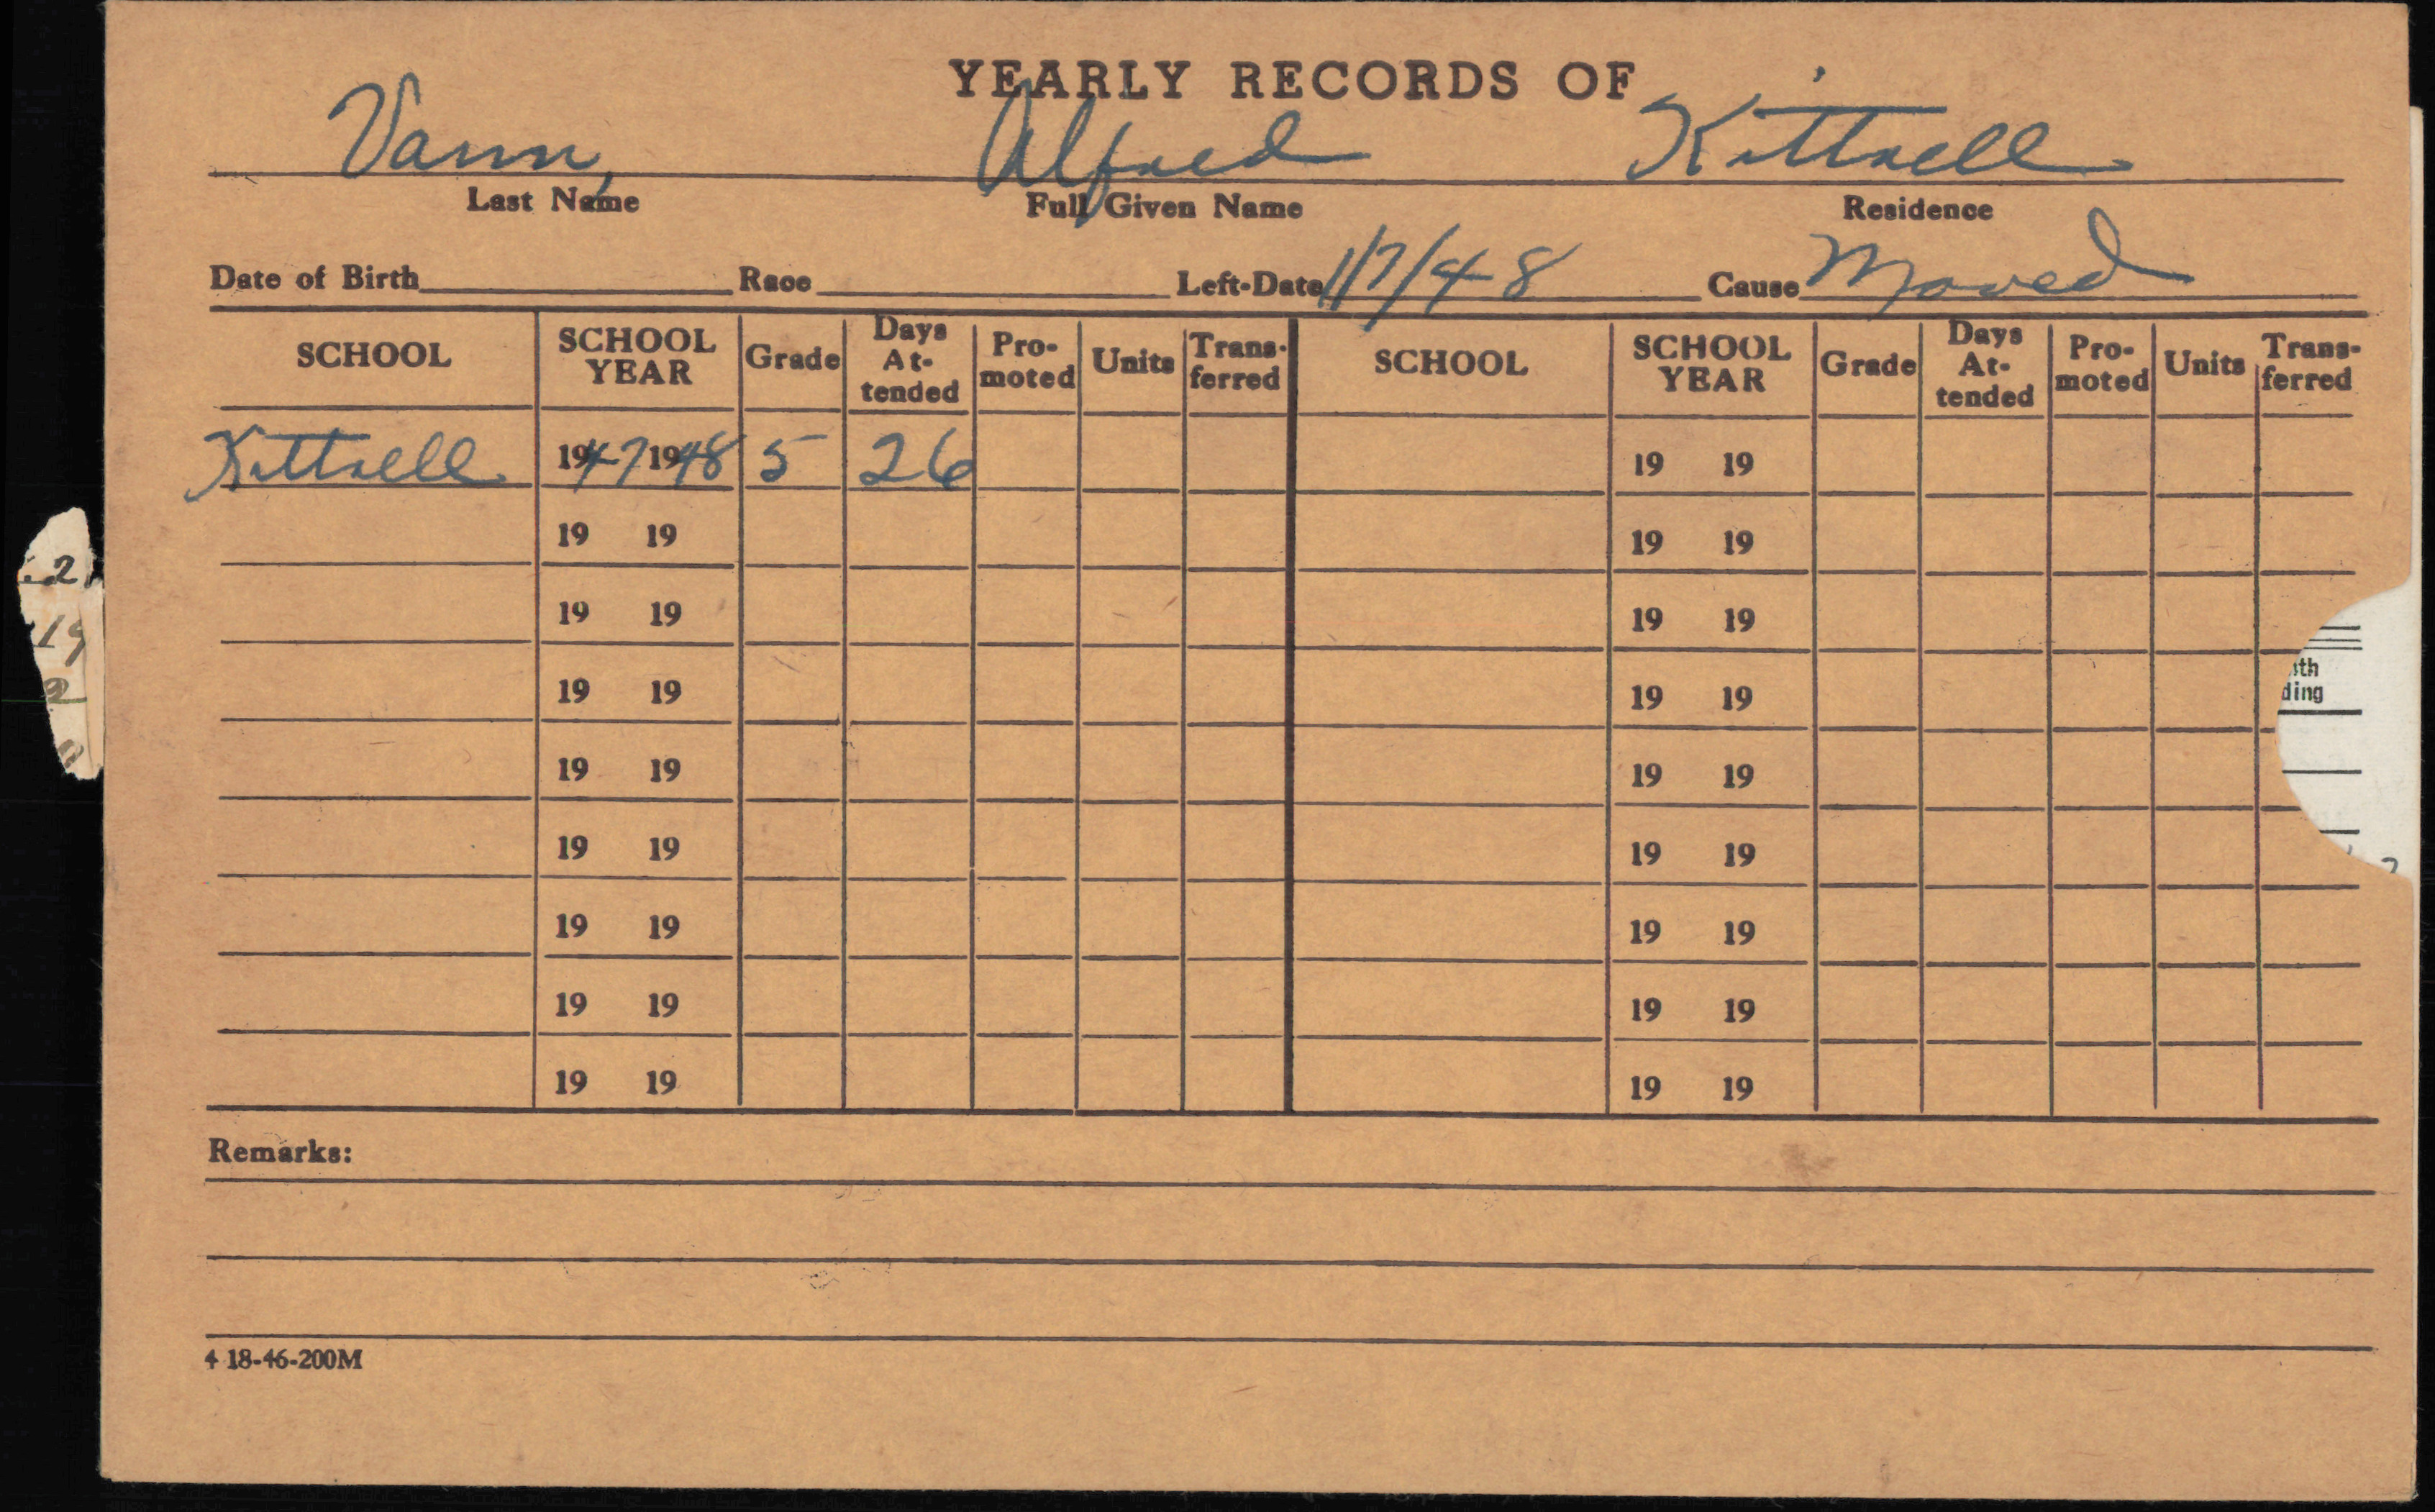 YEARLY RECORDS OF
Vann, Alfred Kittrell
Last Name Full Given Name Residence
Date of Birth Race Left-Date 1/7/48 Cause Moved
SCHOOL SCHOOL YEAR Grade Days At-tended Pro-moted Units Trans-ferred SCHOOL SCHOOL YEAR Grade Days At-tended Pro-moted Units Trans-ferred
Kittrell 1947 1948 5 26 19 19
19 19 19 19
19 19 19 19
19 19 19 19
19 19 19 19
19 19 19 19
19 19 19 19
19 19 19 19
19 19 19 19
Remarks:
4 18-46-200M